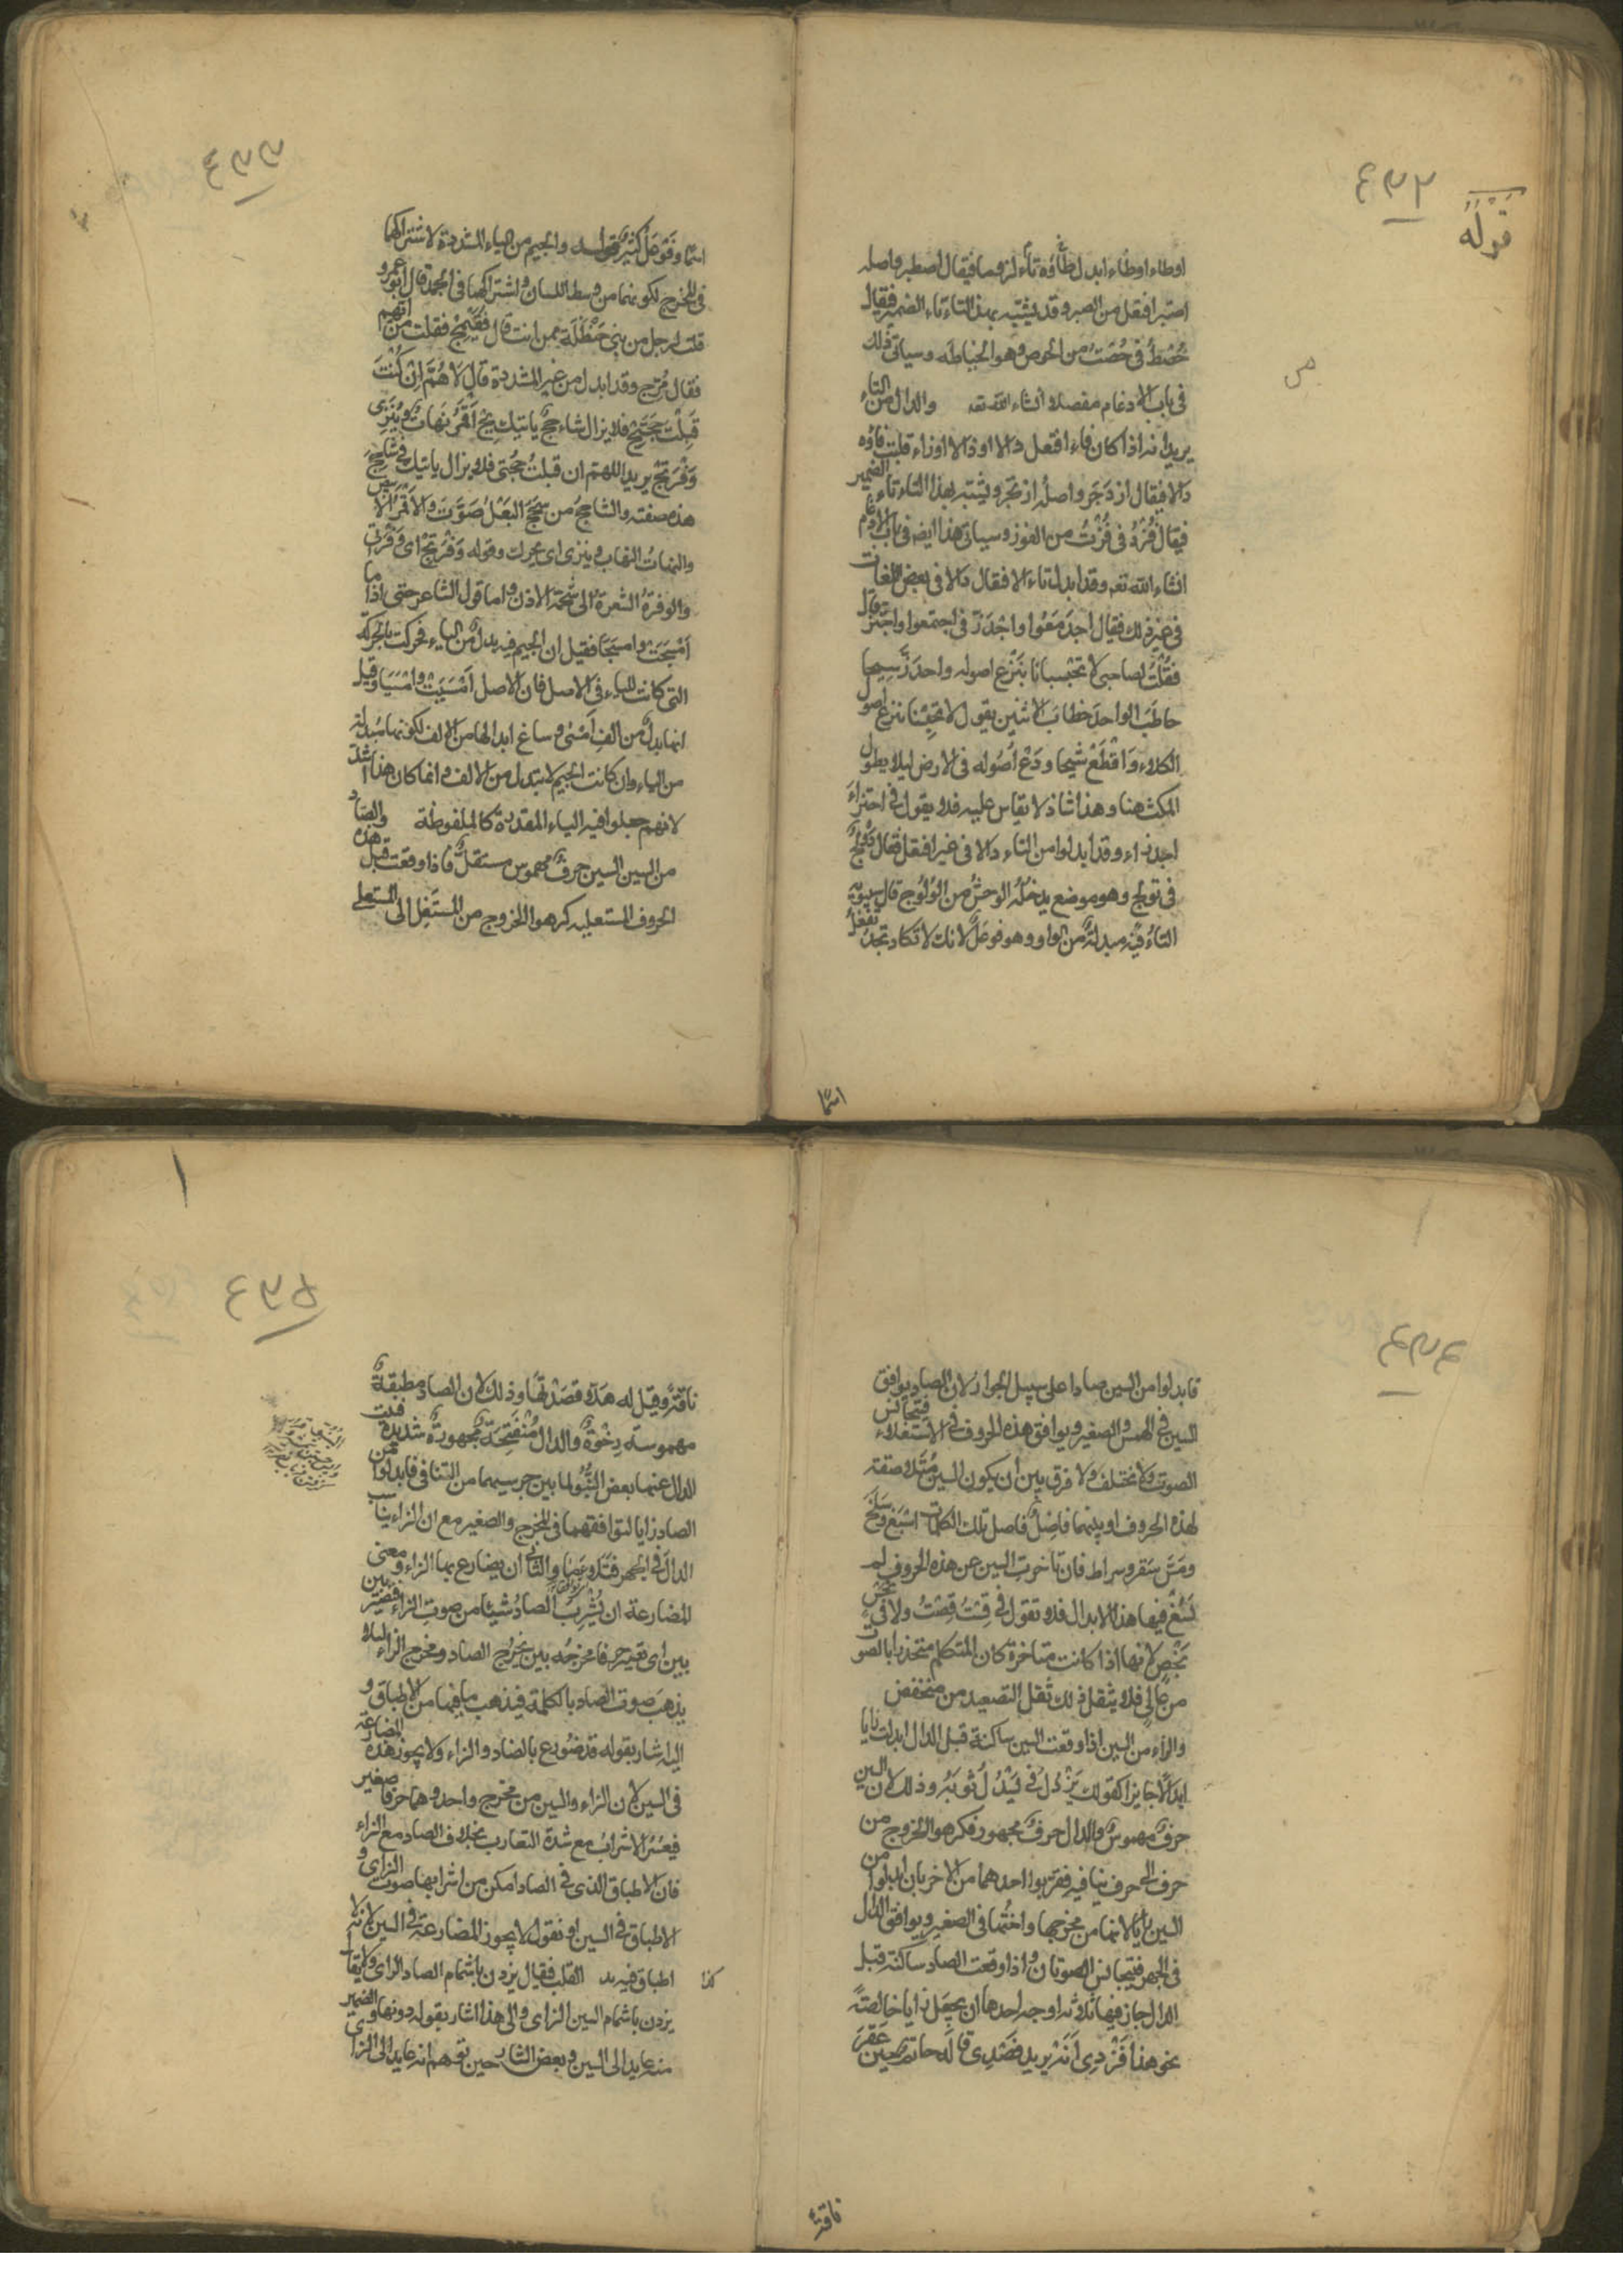 ٤٣٢
قوله
اوطاء اوظاء ابدل طاؤه تاء لزوما فيقال اصطبر واصله
اصتبر افتعل من الصبر وقد يشبه بهذا التاء تاء الضمير فيقال
حُصْطُ فى حُصْتُ من الحوص وهو الخياطه وسياتى ذلك
فى باب الادغام مفصلا انشاء الله تعه والدال من التاء
يريد انه اذا كان فاء افتعل دالا او ذالا او زاء قلبت فاؤه
دالا فيقال ازدَجَر واصله ازتجر ويشبه بهذا التاء تاء الضمير
فيقال فُزْدُ فى فُزْتُ من الفوز وسياتى هذا ايضه فى باب الادغام
انشاء الله تعه وقد ابدلت تاء الافتعال دالا فى بعض اللغات
فى غير ذلك فيقال اجدَمَعُوا واجْدَزَ فى اجتمعوا واجتز قال
فقُلْتُ لصاحبى لا تحبسانا بنَزْعِ اصوله واجدَزَّ شيحا
خاطَبَ الواحدَ خطابَ الاثنين يقول لا تحبسنا بنزع اصول
الكلاء وَاقْطَعْ شيحًا ودَعْ اُصُوله فى الارض ليلا يطول
المكث هنا وهذا شاذ لا يقاس عليه فلا يقول فى اجتراءَ
اجدراء وقد ابدلوا من التاء دالا فى غير افتعل فقال دَوْلج
فى تولج وهو موضع يدخله الوحش من الوُلُوج قال سيبويه
التاءُ فيه مبدلةٌ من الواو وهو فوعَلٌ لانك لا تكاد تجد تَفْعَلُ
اسمًا
٤٣٣
اسمًا وفَوْعَلٌ كثير قوله والجيم من الياء المشددة لاشتراكهما
فى المخرج لكونهما من وسط اللسان واشتراكهما فى الجهر قال ابو عمرو
قلت لرجل من بنى حَنْظَلَة ممن انت قال فُقَيْمِجّ فقلت من ايهم
فقال مُرِّج وقد ابدل من غير المشددة قال لا هُمَّ اِنْ كُنْتَ
قَبِلْتَ حَجَّتِجْ فلا يزال شاحجٌ ياتيك بِجْ اَقْمَرُ نَهَّاتٌ يُنَزِّى
وَفْرَتِجْ يريد اللهم ان قبلتَ حُجَّتى فلا يزال ياتيك بى شاحِجٌ
هذه صفته والشاحجُ من شَحَجَ البَغْلُ صَوَّتَ والاَقْمَرُ الابيض
والنهاتُ النهاب وينزى اى يحرك وقوله وَفْرَتِجْ اى وَفْرَتى
والوفرة الشعرةُ الى شحمة الاذن واما قول الشاعر حتى اذا ما
اَمْسَجَتْ وامسَجَا فقيل ان الجيم فيه بدلٌ من الياء فحركت بالحركة
التى كانت للياء فى الاصل فان الاصل اَمْسَيَتْ وامْسَيَا وقيل
انها بدلٌ من الف اَمْسَى وساغ ابدالها من الالف لكونها مبدلة
من الياء وان كانت الجيم لا تبدل من الالف وانما كان هذا اشذ
لانهم جعلوا فيه الياء المقدرة كالملفوظة والصاد
من السين السين حرفٌ مهموس مستفلٌ فاذا وقعت قبل هذه
الحروف المستعليه كرهوا الخروج من المستَفِل الى المستعلى
٤٣٤
فابدلوا من السين صادا على سبيل الجواز لان الصاد يوافق
السين فى الهمس والصفير ويوافق هذه الحروف فى الاستعلاء فيتجانس
الصوت ولا يختلف ولا فرق بين ان يكون السين مُتَلاصقة
لهذه الحروف او بينهما فاصِلٌ فاصل تلك الكلمات اسْبَغ وسَلَخَ
ومَسَّ سَقَر وسراط فان تاخرت السين عن هذه الحروف لم
يَسُغْ فيها هذا الابدال فلا تقول فى قِسْتُ قِصْتُ ولا فى يَخْسِ
يَخْصِ لانها اذا كانت متاخرة كان المتكلم منحدرا بالصوت
من عالٍ فلا يثقل ذلك ثقل التصعيد من منخفضٍ
والزاء من السين اذا وقعت السين ساكنة قبل الدال ابدلت زايا
ابدالا جايزا كقولك يَزْدُلُ فى يَسْدُلُ ثوبَهُ وذلك لان السين
حرفٌ مهموسٌ والدال حرفٌ مجهور فكرهوا الخروج من
حرف الى حرف ينافيه فقربوا احدهما من الاخر بان ابدلوا من
السين زايا لانها من مخرجها واختُها فى الصفير ويوافق الدال
فى الجهر فيتجانس الصوتان واذا وقعت الصاد ساكنة قبل
الدال جاز فيها ثلاثه اوجه احدها ان يجعل زايا خالصةً
نحو هذا فَزْدى اَنَهْ يريد فصْدِى قاله حاتم حين عَقَرَ
ناقةً
٤٣٥
ناقةً وقيل له هَلّا فصَدْتَها وذلك لان الصاد مطبقةٌ
مهموسة رِخْوَةٌ والدال مُنْفَتِحَةٌ مجهورةٌ شديدة فنبت
الدال عنها بعض النُّبُوّ لما بين جرسيهما من التنافى فابدلوا من
الصاد زايا لتوافقهما فى المخرج والصفير مع ان الزاء يناسب
الدالَ فى الجهر فتلاءما والثانى ان يضارع بها الزاء ومعنى
المضارعة ان يُشْرِبَ الصادُ شيئا من صوت الزاء فتصير بين
بين اى تصير حرفا مخرجُه بين مَخْرج الصاد ومخرج الزاء ليلا
يذهَبَ صوت الصاد بالكلمة فيذهب ما فيها من الاطباق و
اليه اشار بقوله قد ضُورِع بالصاد والزاء ولا يجوز هذه المضارعة
فى السين لان الزاء والسين من مخرج واحد وهما حرفا صفير
فيعسُرُ الاشرابُ مع شدة التقارب بخلاف الصاد مع الزاء
فان الاطباق الذى فى الصاد امكن من اشرابها صوت الزاى و
لا اطباق فى السين او نقول لا يجوز المضارعة فى السين لانه لا
اطباق فيه يد القلب فيقال يزدن باشمام الصاد الزاى ولا يقال
كذا
يزدن باشمام السين الزاى والى هذا اشار بقوله دونها والضمير
منه عايد الى السين وبعض الشار حين توهم انه عايد الى الزاى